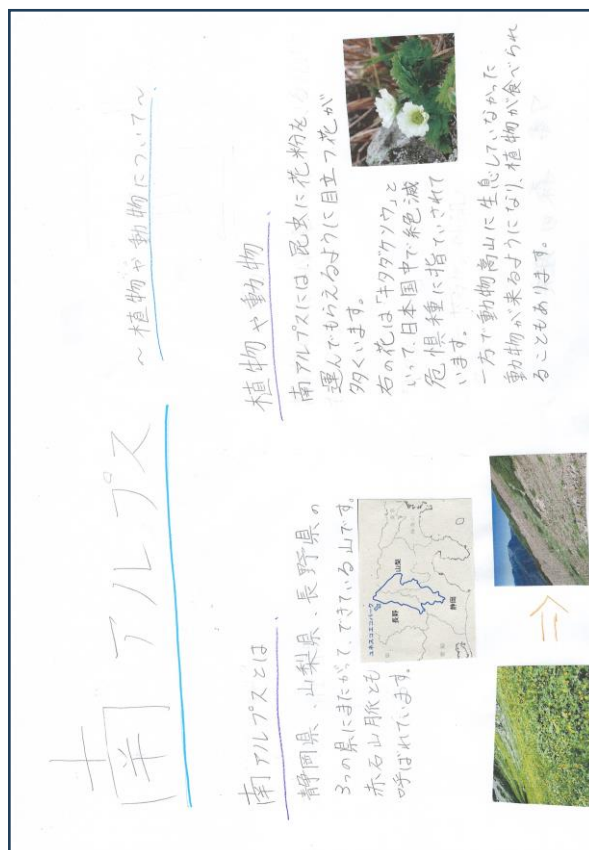 南アルプス
～植物や動物について～
南アルプスとは
静岡県、山梨県、長野県の
3つの県にまたがって、できている山です。
赤石山脈とも
呼ばれています。
ユネスコエコパーク
長野
山梨
静岡
植物や動物
南アルプスには、昆虫に花粉を
運んでもらえるように目立つ花が
多くいます。
右の花は「キタダケソウ」と
いって、日本国中で絶滅
危惧種に指ていされて
います。
一方で動物高山に生息していなかった
動物が来るようになり、植物が食べられ
ることもあります。